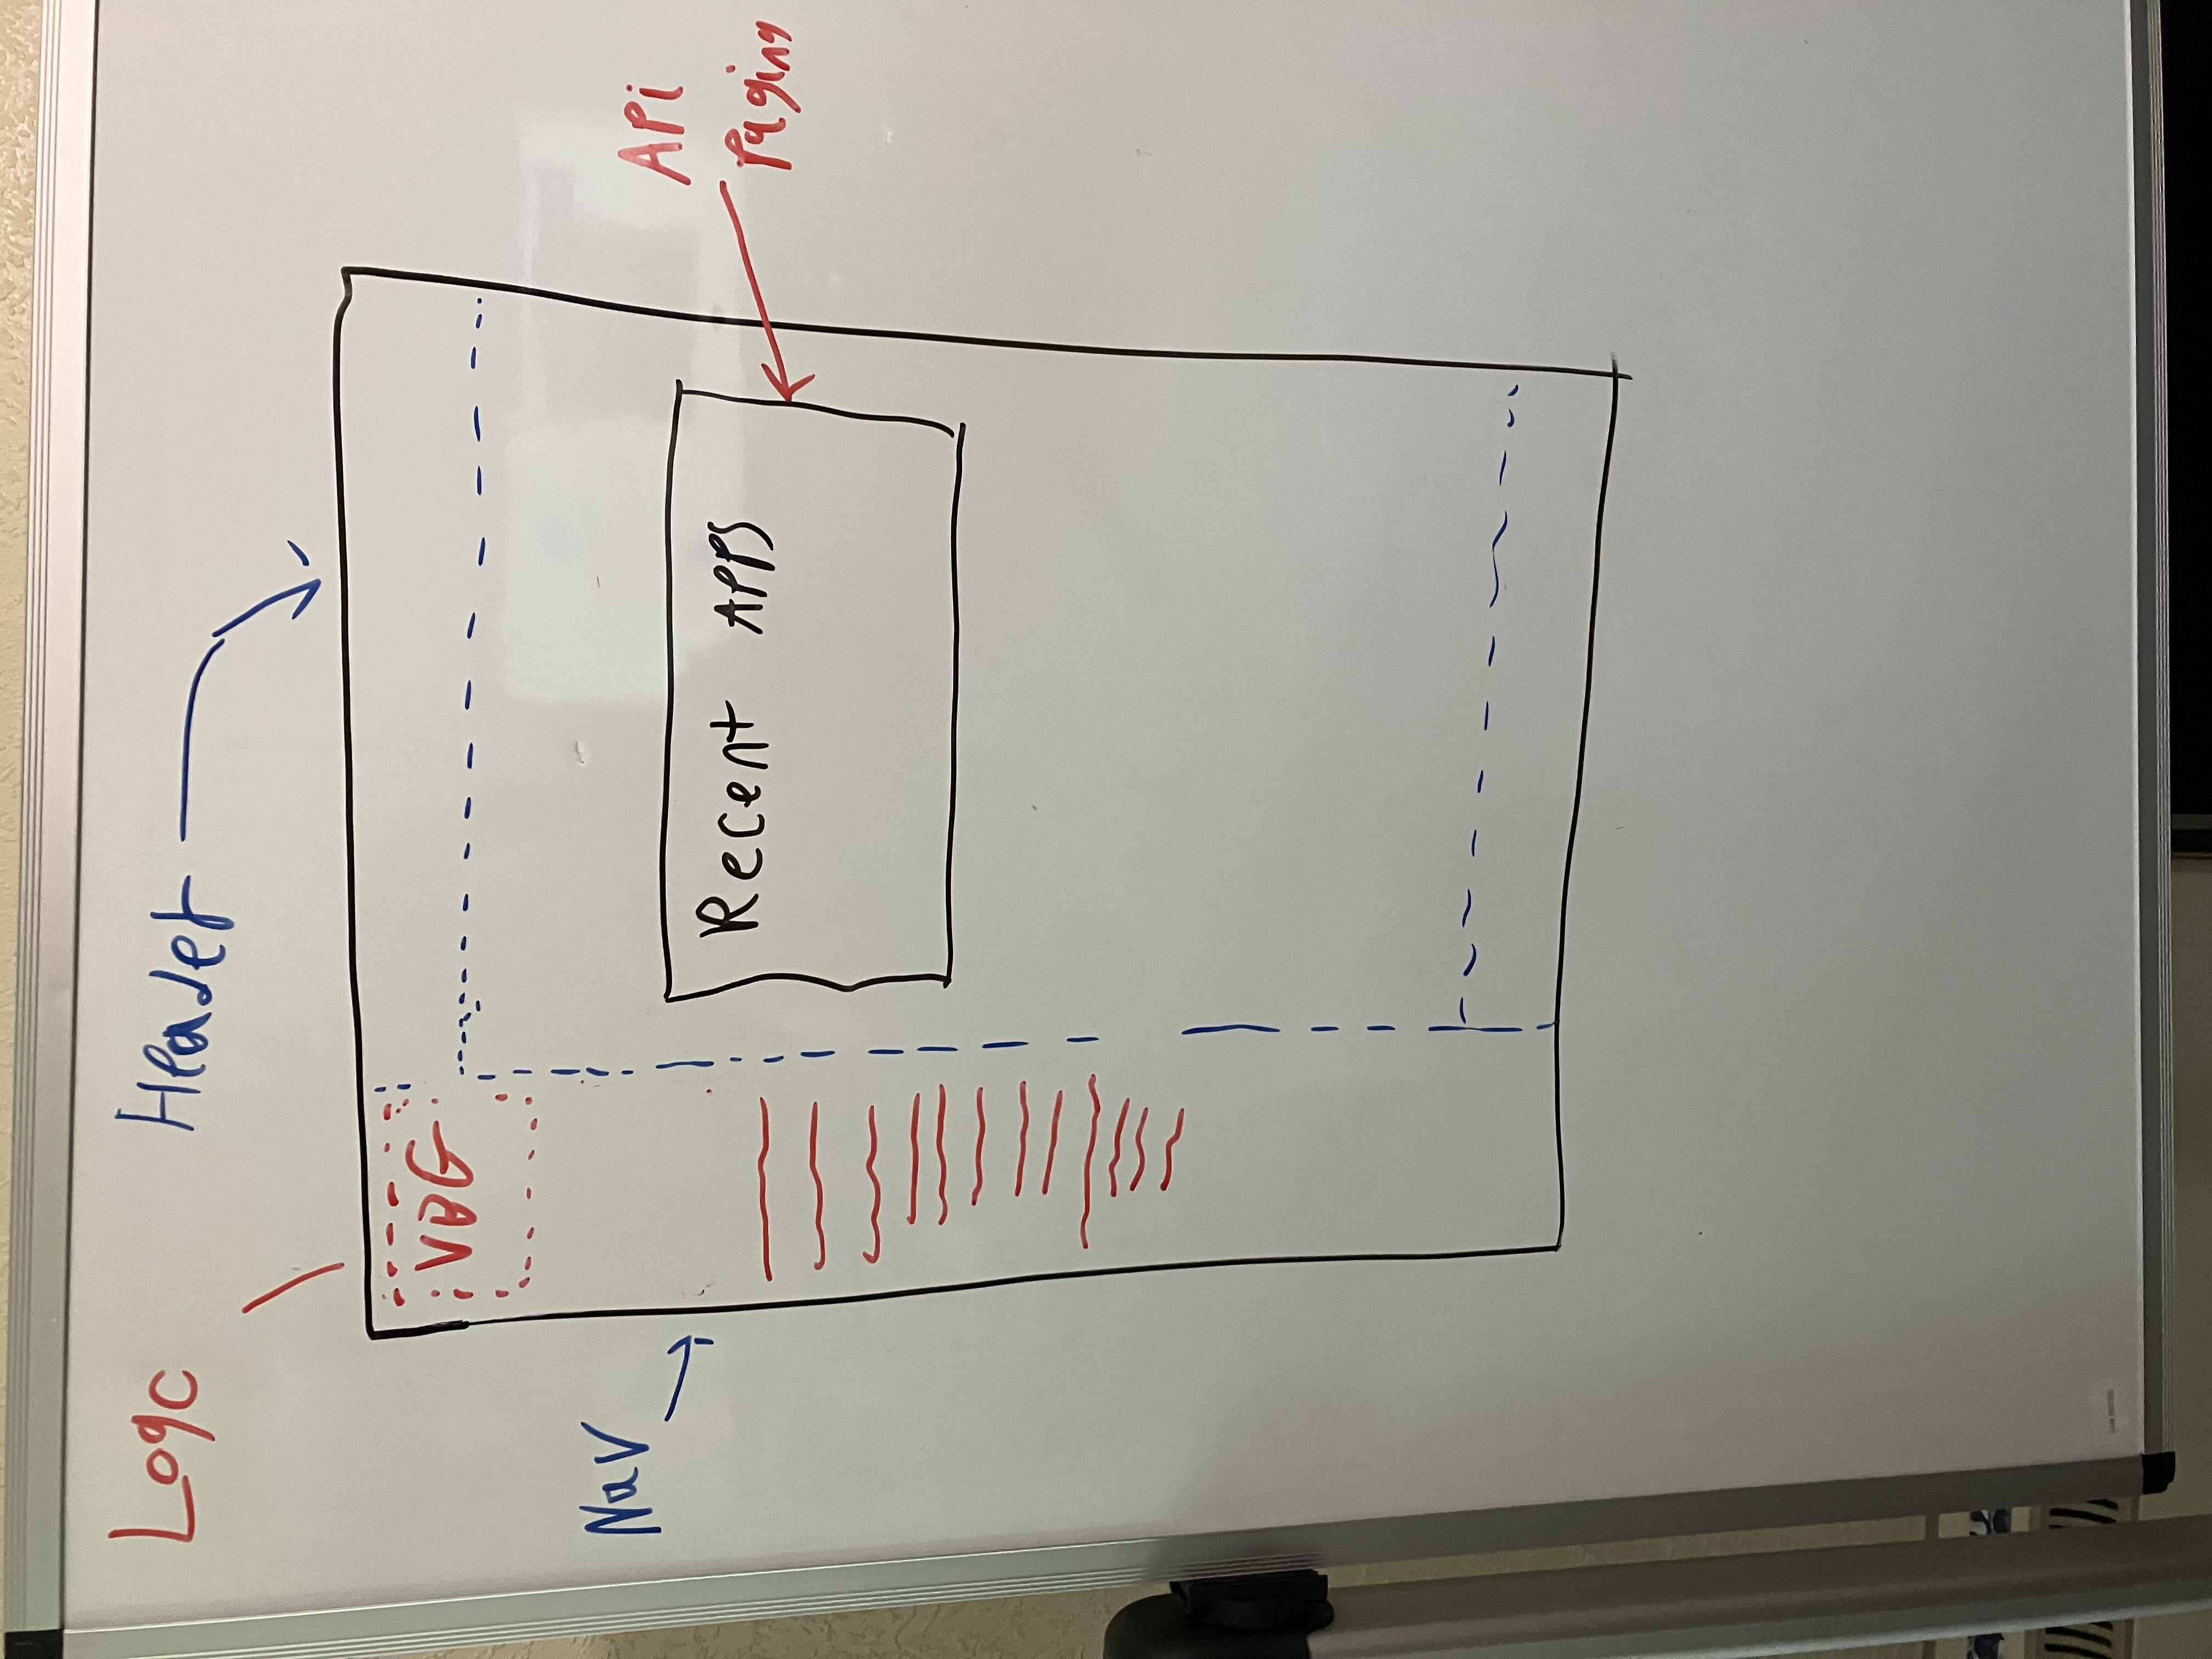 Logc
Header
VBG
Nav
Recent APPS
APi
Paging